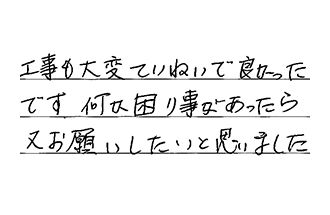 工事も大変ていねいで良かった
です 何か困り事があったら
又お願いしたいと思いました